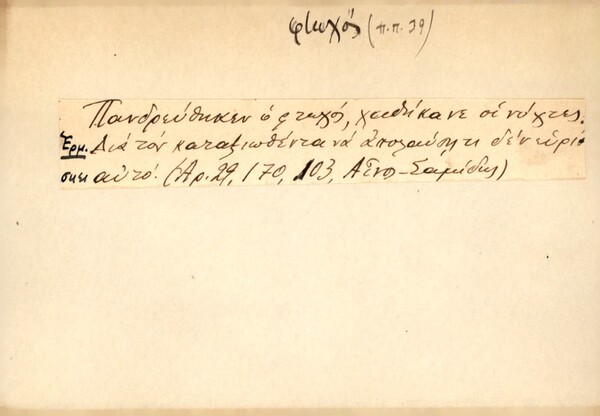 φτωχός (π.π. 39)
Πανδρεύθηκεν ὁ φτωχός, χαθήκανε οἱ νύχτες.
Ἑρμ. Διά τόν καταξιωθέντα νά ἀπολαύσῃ τι δέν εὑρί-
σκει αὐτό. (Ἀρ. 29, 170, 103, Αἶνος-Σαμίδης)